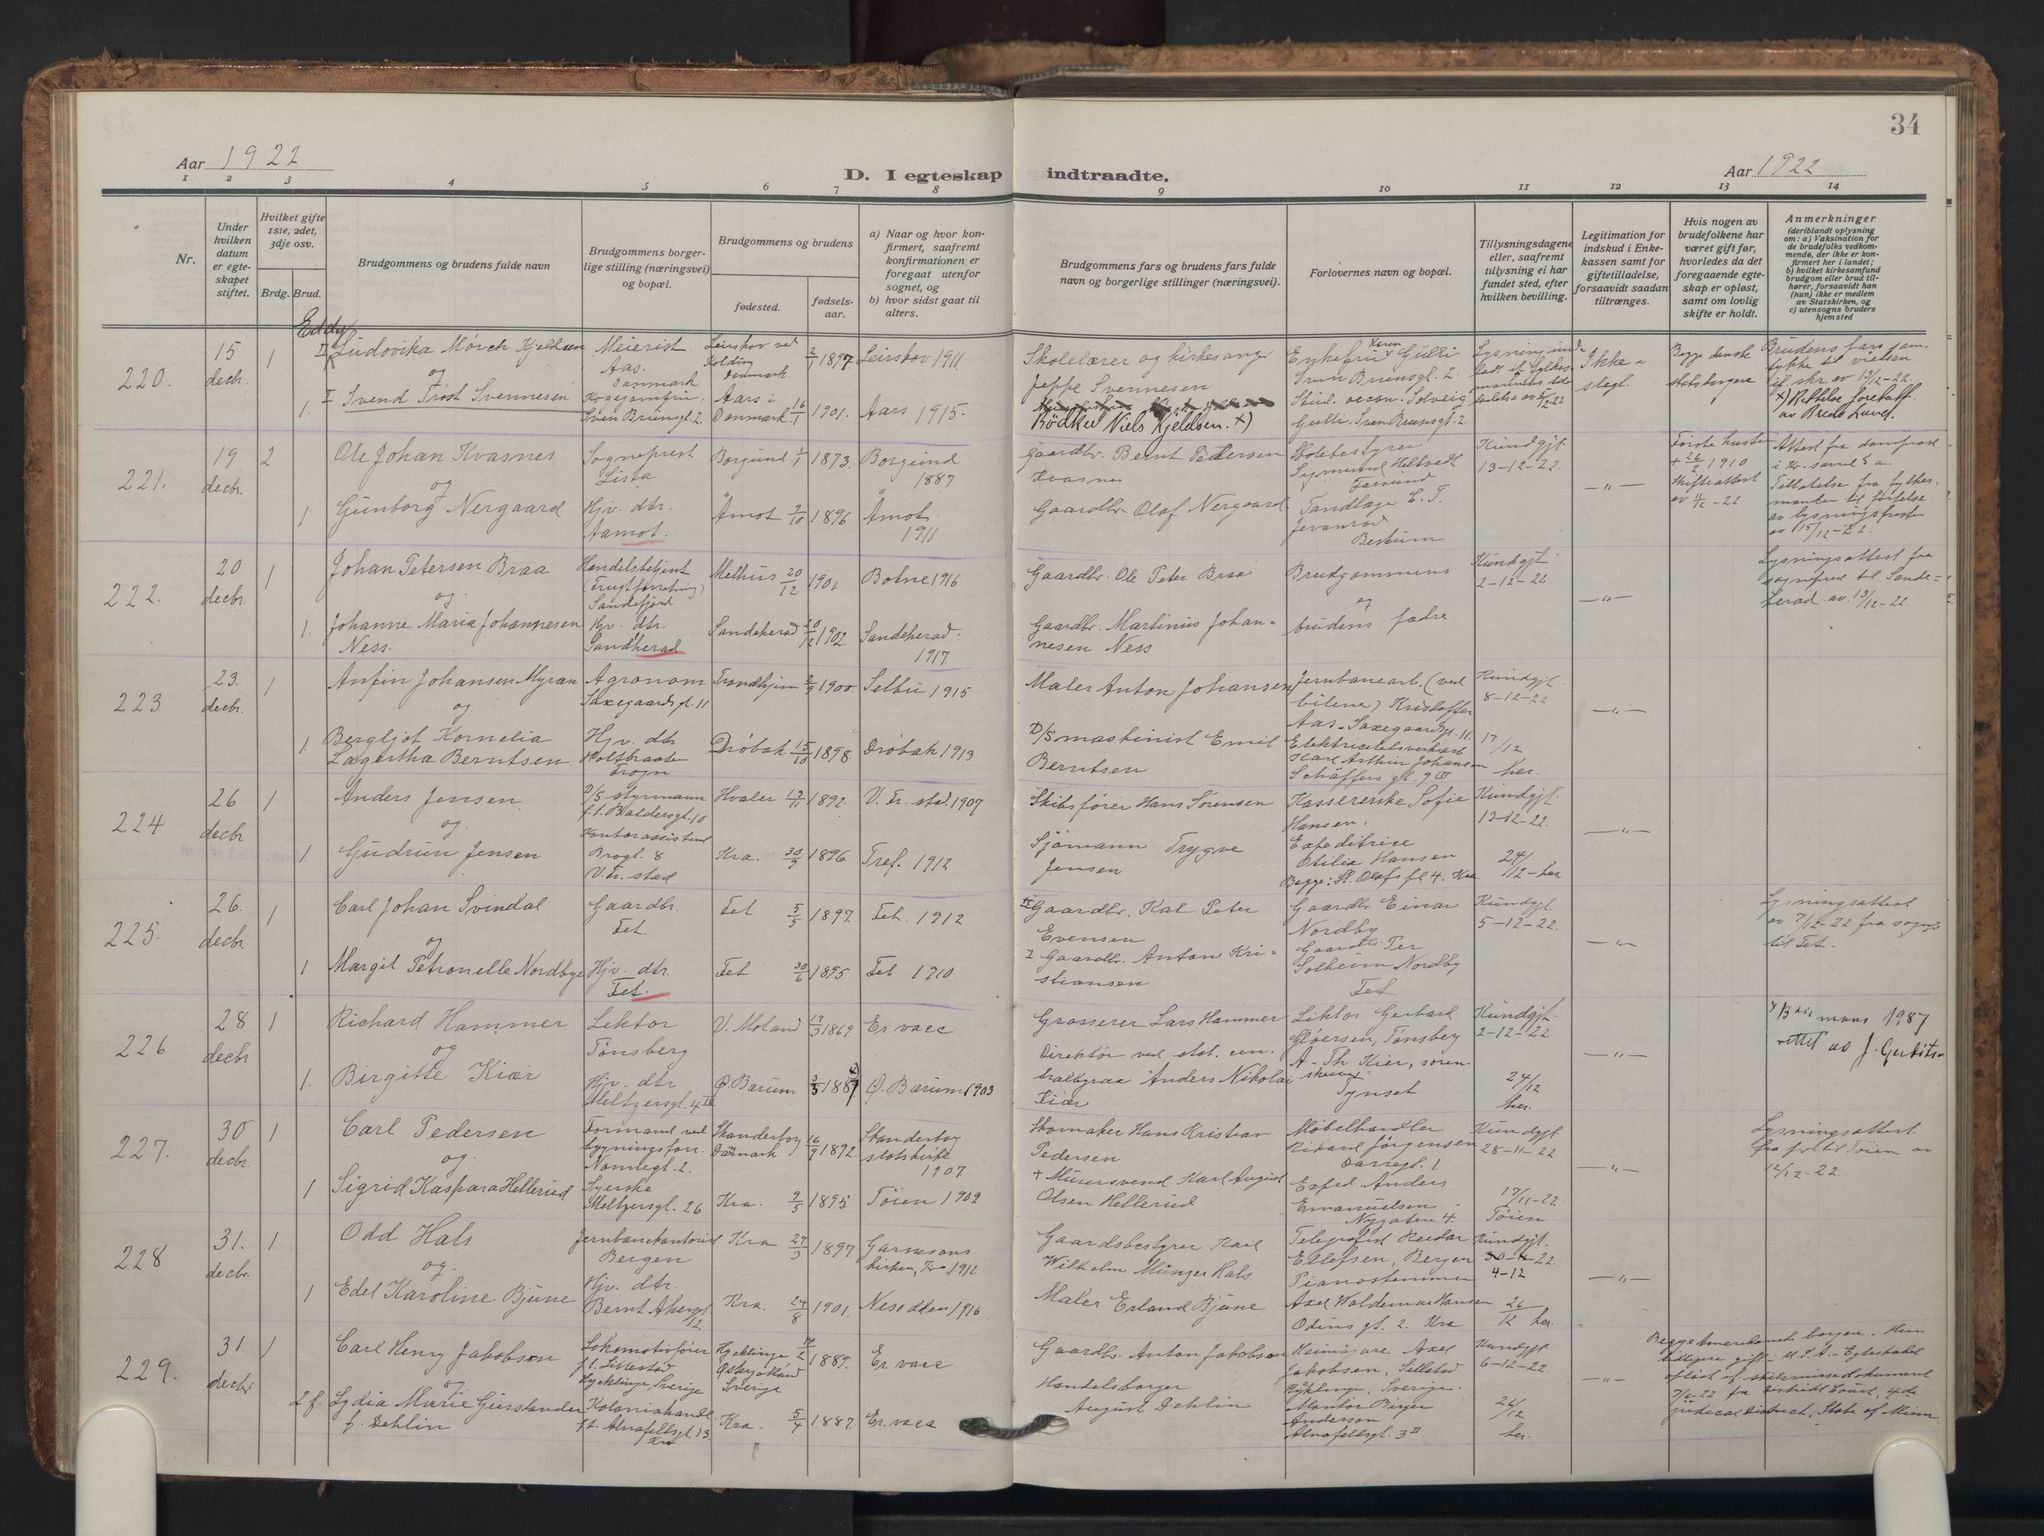 34
Aar 1922
D. I egteskap indtraadte.
Aar 1922
1 2 3 4 5 6 7 8 9 10 11 12 13 14
Nr.
Under hvilken datum er egteskapet stiftet.
Hvilket gifte 1ste, 2det, 3dje osv.
Brdg. Brud.
Brudgommens og brudens fulde navn
Brudgommens borgerlige stilling (næringsvei) og bopæl.
Brudgommens og brudens
fødested.
fødselsaar.
a) Naar og hvor konfirmert, saafremt konfirmationen er foregaat utenfor sognet, og
b) hvor sidst gaat til alters.
Brudgommens fars og brudens fars fulde navn og borgerlige stillinger (næringsvei).
Forlovernes navn og bopæl.
Tillysningsdagene eller, saafremt tillysning ei har fundet sted, efter hvilken bevilling.
Legitimation for indskud i Enkekassen samt for giftetilladelse, forsaavidt saadan tiltrænges.
Hvis nogen av brudefolkene har været gift før, hvorledes da det foregaaende egteskap er opløst, samt om lovlig skifte er holdt.
Anmerkninger (deriblandt oplysning om: a) Vaksination for de brudefolks vedkommende, der ikke er konfirmert her i landet; b) hvilket kirkesamfund brudgom eller brud tilhører, forsaavidt han (hun) ikke er medlem av Statskirken, og c) utensogns bruders hjemsted
220. 15 decbr. 1
Eddy
II Ludovika Mörch Kjeldsen
og
1. I Svend Trøst Svennesen
Meierist Aas. Danmark
Leirskov ved Kolding Danmark. 1897 Leirskov 1911
Kogejomfru, Sven Brunsgt. 2
Aars i Denmark 16/1 1901. Aars 1915.
Skolelærer og kirkesanger Jeppe Svennesen
Bödker Niels Kjeldsen. x)
Enkefru Karen Gulli Sven Brunsgt. 2.
Stud. oecon. Solveig Gulli. Sven Brunsgt. 2.
Ikke slegt.
Begge danske statsborgere
Brudens fars samtykke til vielsen if. skr. av 13/12-22
x) Rettelse foretatt av
221. 19 decbr. 2
Ole Johan Kvasnes
og
1 Gunborg Nergaard
Sogneprest Lista
Borgund 1/1 1873. Borgund 1887
Hjv. dtr. Aamot.
Åmot 9/10 1896 Åmot 1911
Gaardbr. Bernt Pedersen Kvasnes
Gaardbr. Olaf Nergaard
Skolebestyrer Sigmund Heltvedt Farsund
Tandlæge E. T. Bestum
Kundgjt. 13-12-22.
—"—
Første hustru + 26/2 1910
Skifteattest
Tillatelse fra fylkesmanden til forføielse av lysningsfristen av 15/12-22.
222. 20 decbr. 1
Johan Petersen Braa
og
1. Johanne Maria Johannesen Ness.
Handelsbetjent (Frugtforretning) Sandefjord
Melhus 20/12 1901 Botne 1916
Hjv. dtr. Sandherad
Sandeherad 1902. Sandeherad. 1917
Gaardbr. Ole Peter Braa
Gaardbr. Martinus Johannesen Ness
Brudgommens og brudens fædre
Kundgjt. 2-12-22
—"—
Lysningsattest fra sogneprest til Sandeherad av 13/12-22.
223 23. decbr. 1
Anfin Johansen Myran
og
1 Bergljot Kornelia Lagertha Berntsen
Agronom Saxegaardsgt. 11
Trondhjem 2/9 1900 Selbu 1915
Hjv. dtr. Holtbraaten Frogn
Drøbak 15/10 1898. Drøbak 1913
Maler Anton Johansen
D/S maskinist Emil Berntsen
Jernbanearb. (ved bilene) Kristoffer Aas. Saxegaardsgt. 11.
Elektricitetsverksarb Karl Arthur Johansen Schäffers gt. 9 III
Kundgjt. 8-12-22
17/12 her.
—"—
224 26 decbr 1
Anders Jensen
og
1 Gudrun Jensen
D/S styrmann f. t. Baldersgt. 10
Hvaler 13/11 1892. V. Fr. stad. 1907
Kontorassistent Brogt. 8 V. Fr. stad
Kra. 30/9 1896 Tref. 1912
Skibsfører Hans Sørensen
Sjømann Trygve Jensen
Kassererske Sofie Hansen.
Expeditrice Otilie Hansen
Begge: St. Olafs pl. 4. Kra
Kundgjt. 13-12-22.
24/12 - her
—"—
225. 26. decbr. 1
Carl Johan Svindal
og
1 Margit Petronelle Nordbye
Gaardbr. Fet.
Fet 5/5 1897. Fet. 1912
Hjv. dtr. Fet.
Fet 30/6 1895 Fet 1910
II Gaardbr. Kal Peter Evensen
I Gaardbr. Anton Kristiansen
Gaardbr. Einar Nordby
Gaardbr. Per Solheim Nordby Fet
Kundgjt. 5-12-22.
—"—
Lysningsattest av 7/12-22 fra sognepr. til Fet.
226 28 decbr. 1
Richard Hammer
og
1. Birgitte Kiær
Lektor Tønsberg
V. Moland 17/3 1869 Er vacc
Hjv. dtr Meltzersgt. 4 III
Ø. Bærum 3/3 1887 Ø. Bærum 1903
Grosserer Lars Hammer
Direktør ved stat. centralbyraa Anders Nikolai Kiær
Lektor Gerhard Gløersen, Tønsberg
A. Th. Kiær, sorenskriver Tynset
Kundgjt. 2-12-22.
24/12 her.
—"—
1987 rettet av J.
227. 30 decbr. 1
Carl Pedersen
og
1 Sigrid Kaspara Hellerud
Formand ved bygningsforr. Nonnegt. 2.
Skanderborg Danmark 16/9 1892. Skanderborg slotskirke 1907
Syerske Meltzersgt. 26
Kra. 2/5 1895 Tøien 1909
Skomaker Hans Kristian Pedersen
+ Murersvend Karl August Olsen Hellerud
Møbelhandler Rikard Jørgensen Darresgt. 1
Exped. Anders Emanuelsen Nygaten 4.
Kundgjt. 28-11-22
17/11-22 Tøien
—"—
Lysningsattest fra spr. til Tøien av 12/12-22
228 31. decbr. 1
Odd Hals
og.
1 Edel Karoline Bjune
Jernbanekontorist Bergen
Kra 27/3 1897. Garnisonskirken, Kra. 1912
Hjv. dtr. Bernt Ankersgt. 12.
Kra. 24/8 1901. Nesodden 1916
Gaardsbestyrer Karl Wilhelm Munger Hals
Maler Erland Bjune
Telegrafist Reidar Ellefsen, Bergen
Pianostemmer Axel Waldemar Hansen Odins gt. 2. Kra
Kundgjt. 4-12
26/12 her.
—"—
229. 31 decbr 1
Carl Henry Jakobson
og
2 f. Lydia Marie f. Dehlin
Lokomotivfører Sverige
Østergøtland Sverige 14/2 1889. Er vacc
Kolonialhandl. f. t. Alnafeltsgt. 3 Kra
Kra. 5/4 1887. Er vacc
Gaardbr. Anton Jakobson
Handelsborger August Dehlin
Axel Jakobsen, Sverige.
Anderson Alnafeltsgt. 3 II
Kundgjt 6-12-22
26/12 her.
—"—
Begge Amerikanske borgere. Hun tidligere gift i U. S. A. Egteskabet opløst if. skilsmissedokument fra District Court, 4de Judical District, State of Minn.